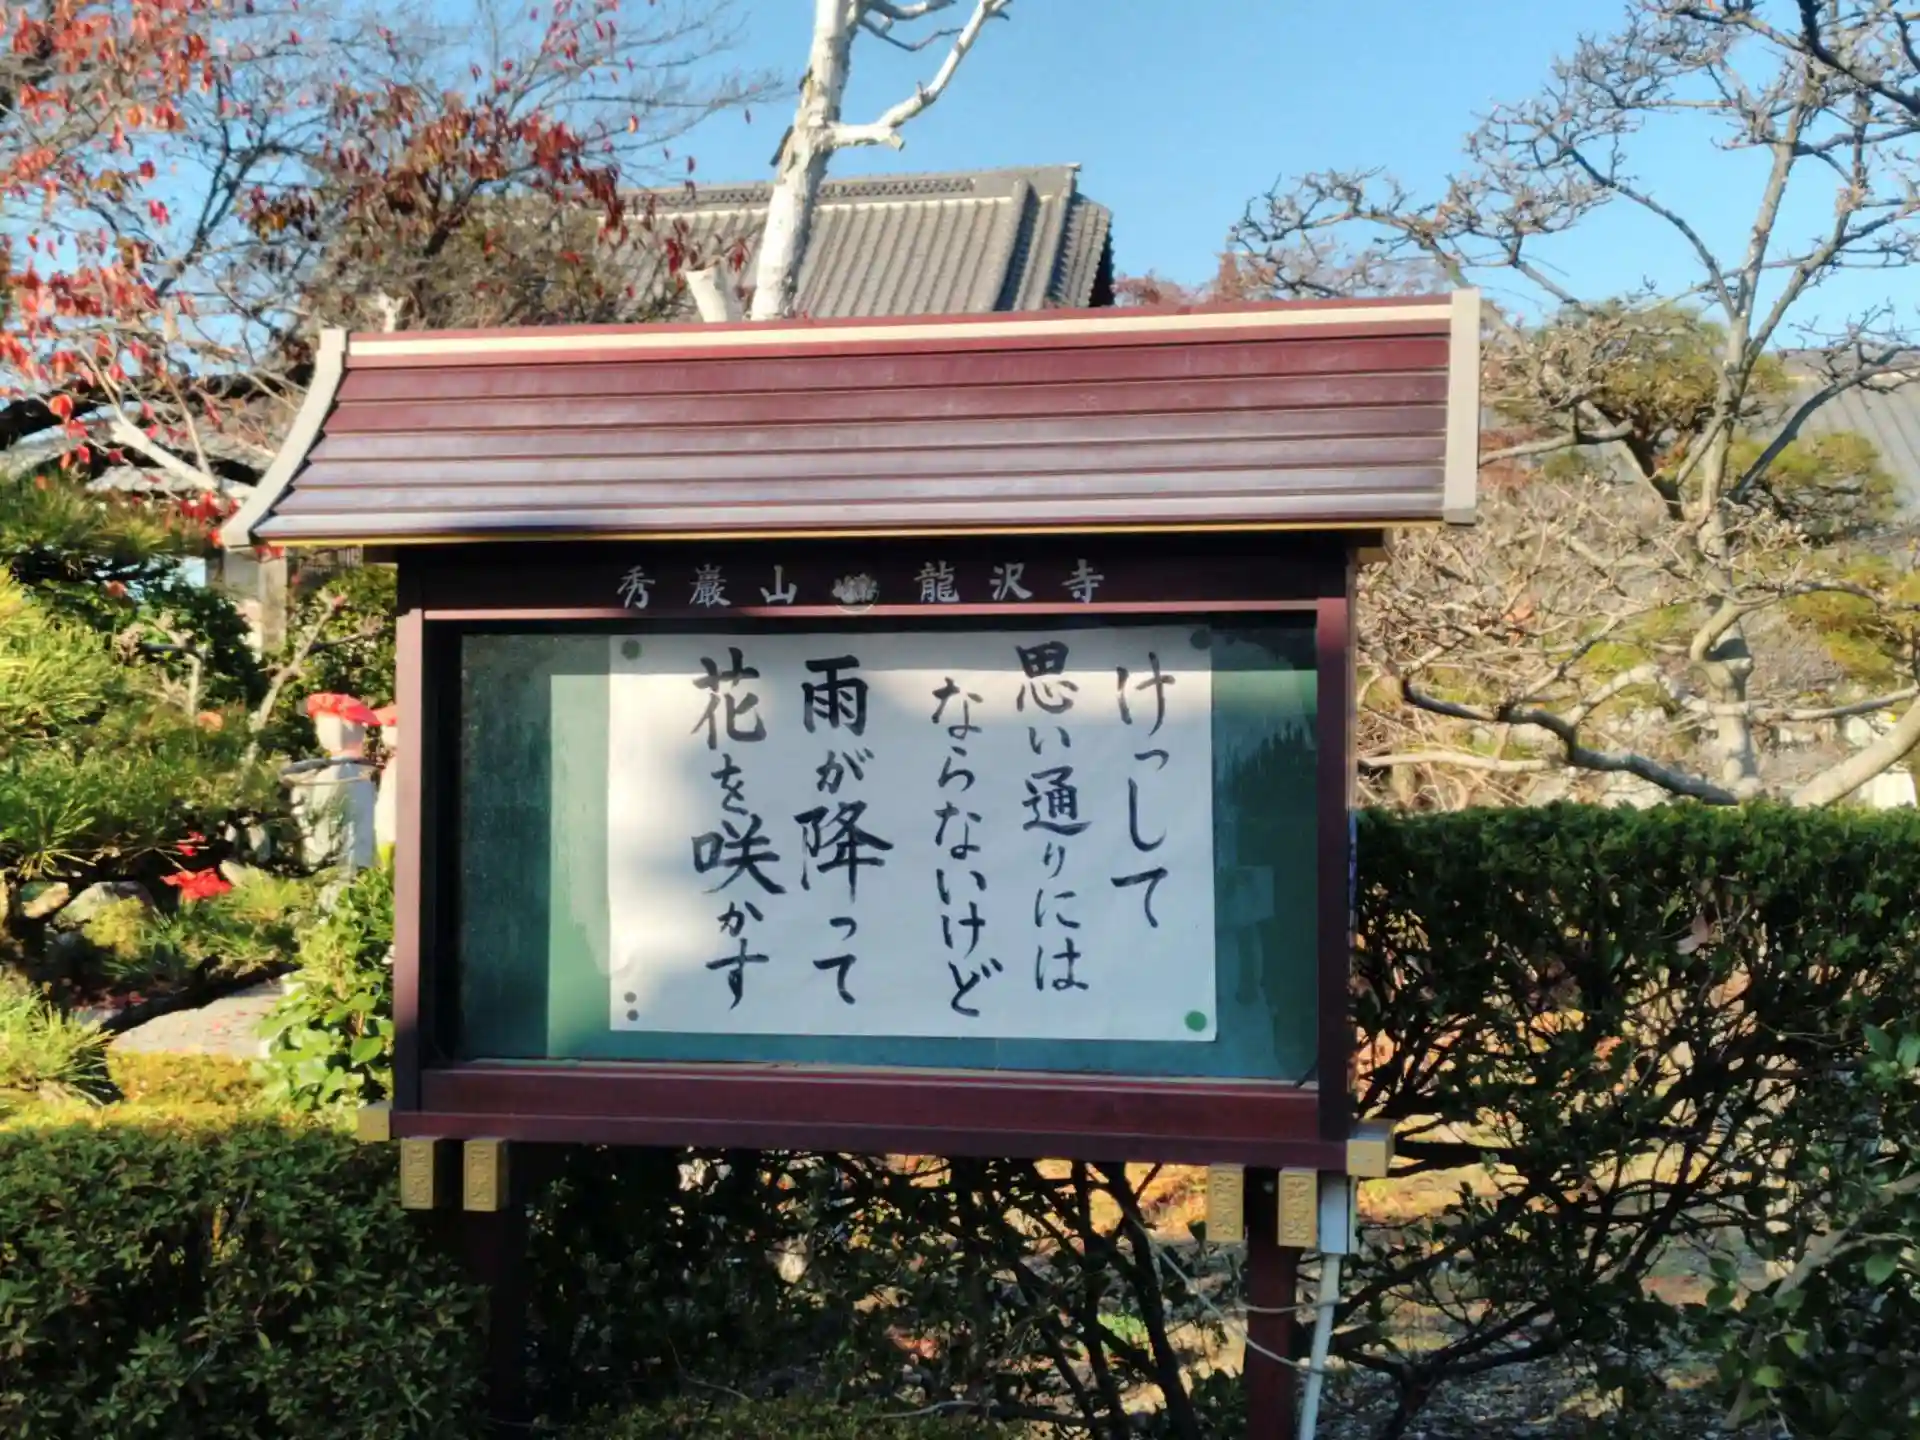 秀巖山 龍沢寺
けっして
思い通りには
ならないけど
雨が降って
花を咲かす